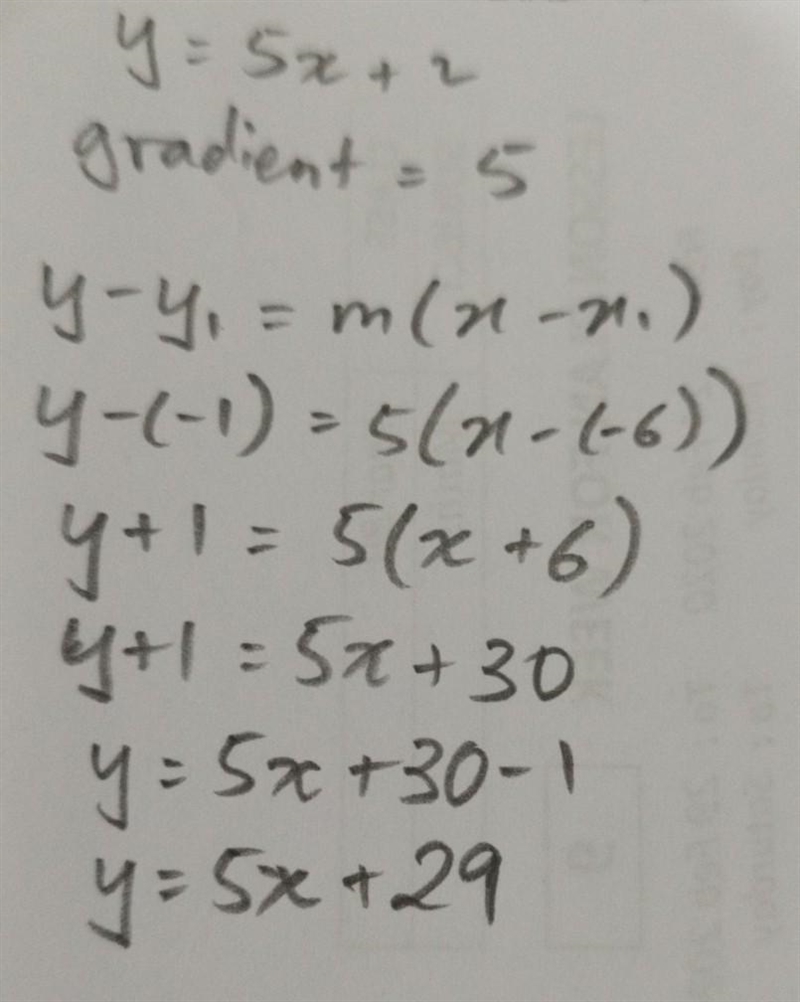 y = 5x + 2
gradient = 5
y - y₁ = m(x - x₁)
y - (-1) = 5(x - (-6))
y + 1 = 5(x + 6)
y + 1 = 5x + 30
y = 5x + 30 - 1
y = 5x + 29